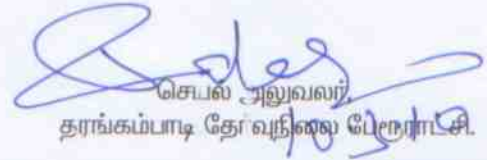 செயல் அலுவலர்,
தரங்கம்பாடி தேர்வுநிலை பேரூராட்சி.